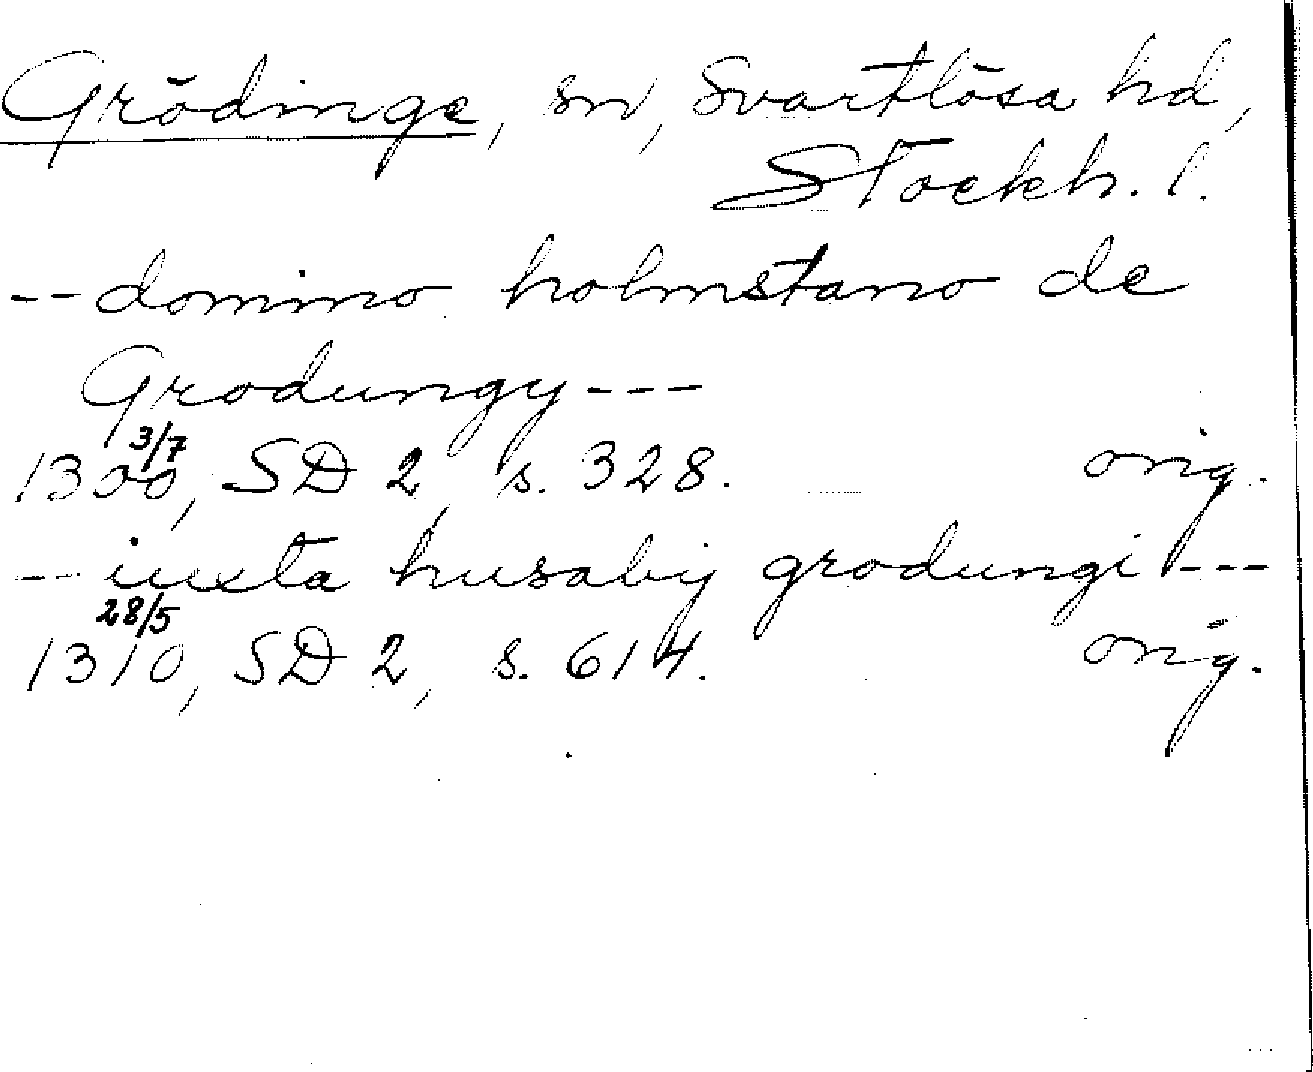 Grödinge, sn, Svartlösa hd,
Stockh. l.
-- domino holmstano de
Grodungy ---
1300 3/7, SD 2, s. 328. orig.
-- iuxta husaby grodungi ---
1310 28/5, SD 2, s. 614. orig.